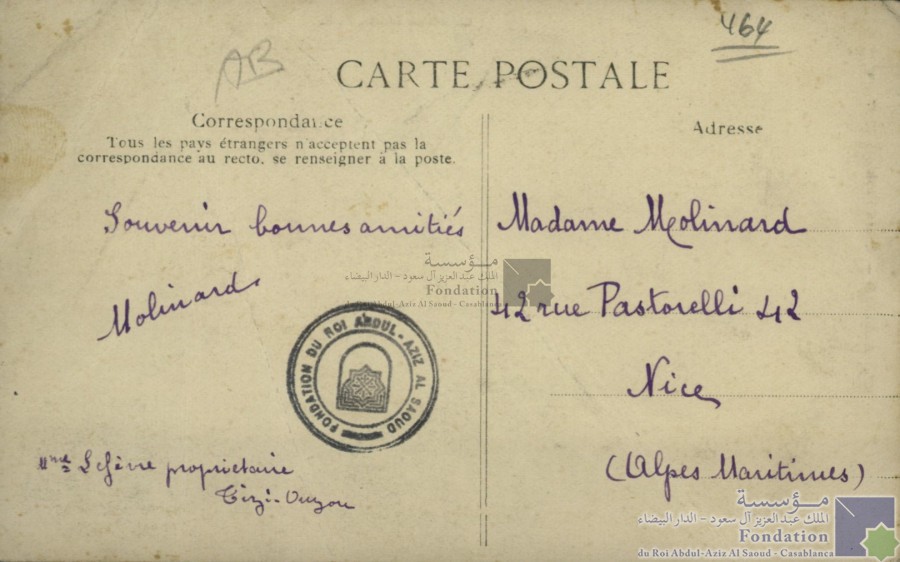 464
AB
CARTE POSTALE
Correspondance
Tous les pays étrangers n'acceptent pas la
correspondance au recto, se renseigner à la poste.
Souvenir bonnes amitiés
Molinard
Mme Lefèvre propriétaire
Tizi-Ouzou
Adresse
Madame Molinard
42 rue Pastorelli 42
Nice
(Alpes Maritimes)
FONDATION DU ROI ABDUL-AZIZ AL SAOUD
مؤسسة
الملك عبد العزيز آل سعود - الدار البيضاء
Fondation
du Roi Abdul-Aziz Al Saoud - Casablanca
مؤسسة
الملك عبد العزيز آل سعود - الدار البيضاء
Fondation
du Roi Abdul-Aziz Al Saoud - Casablanca